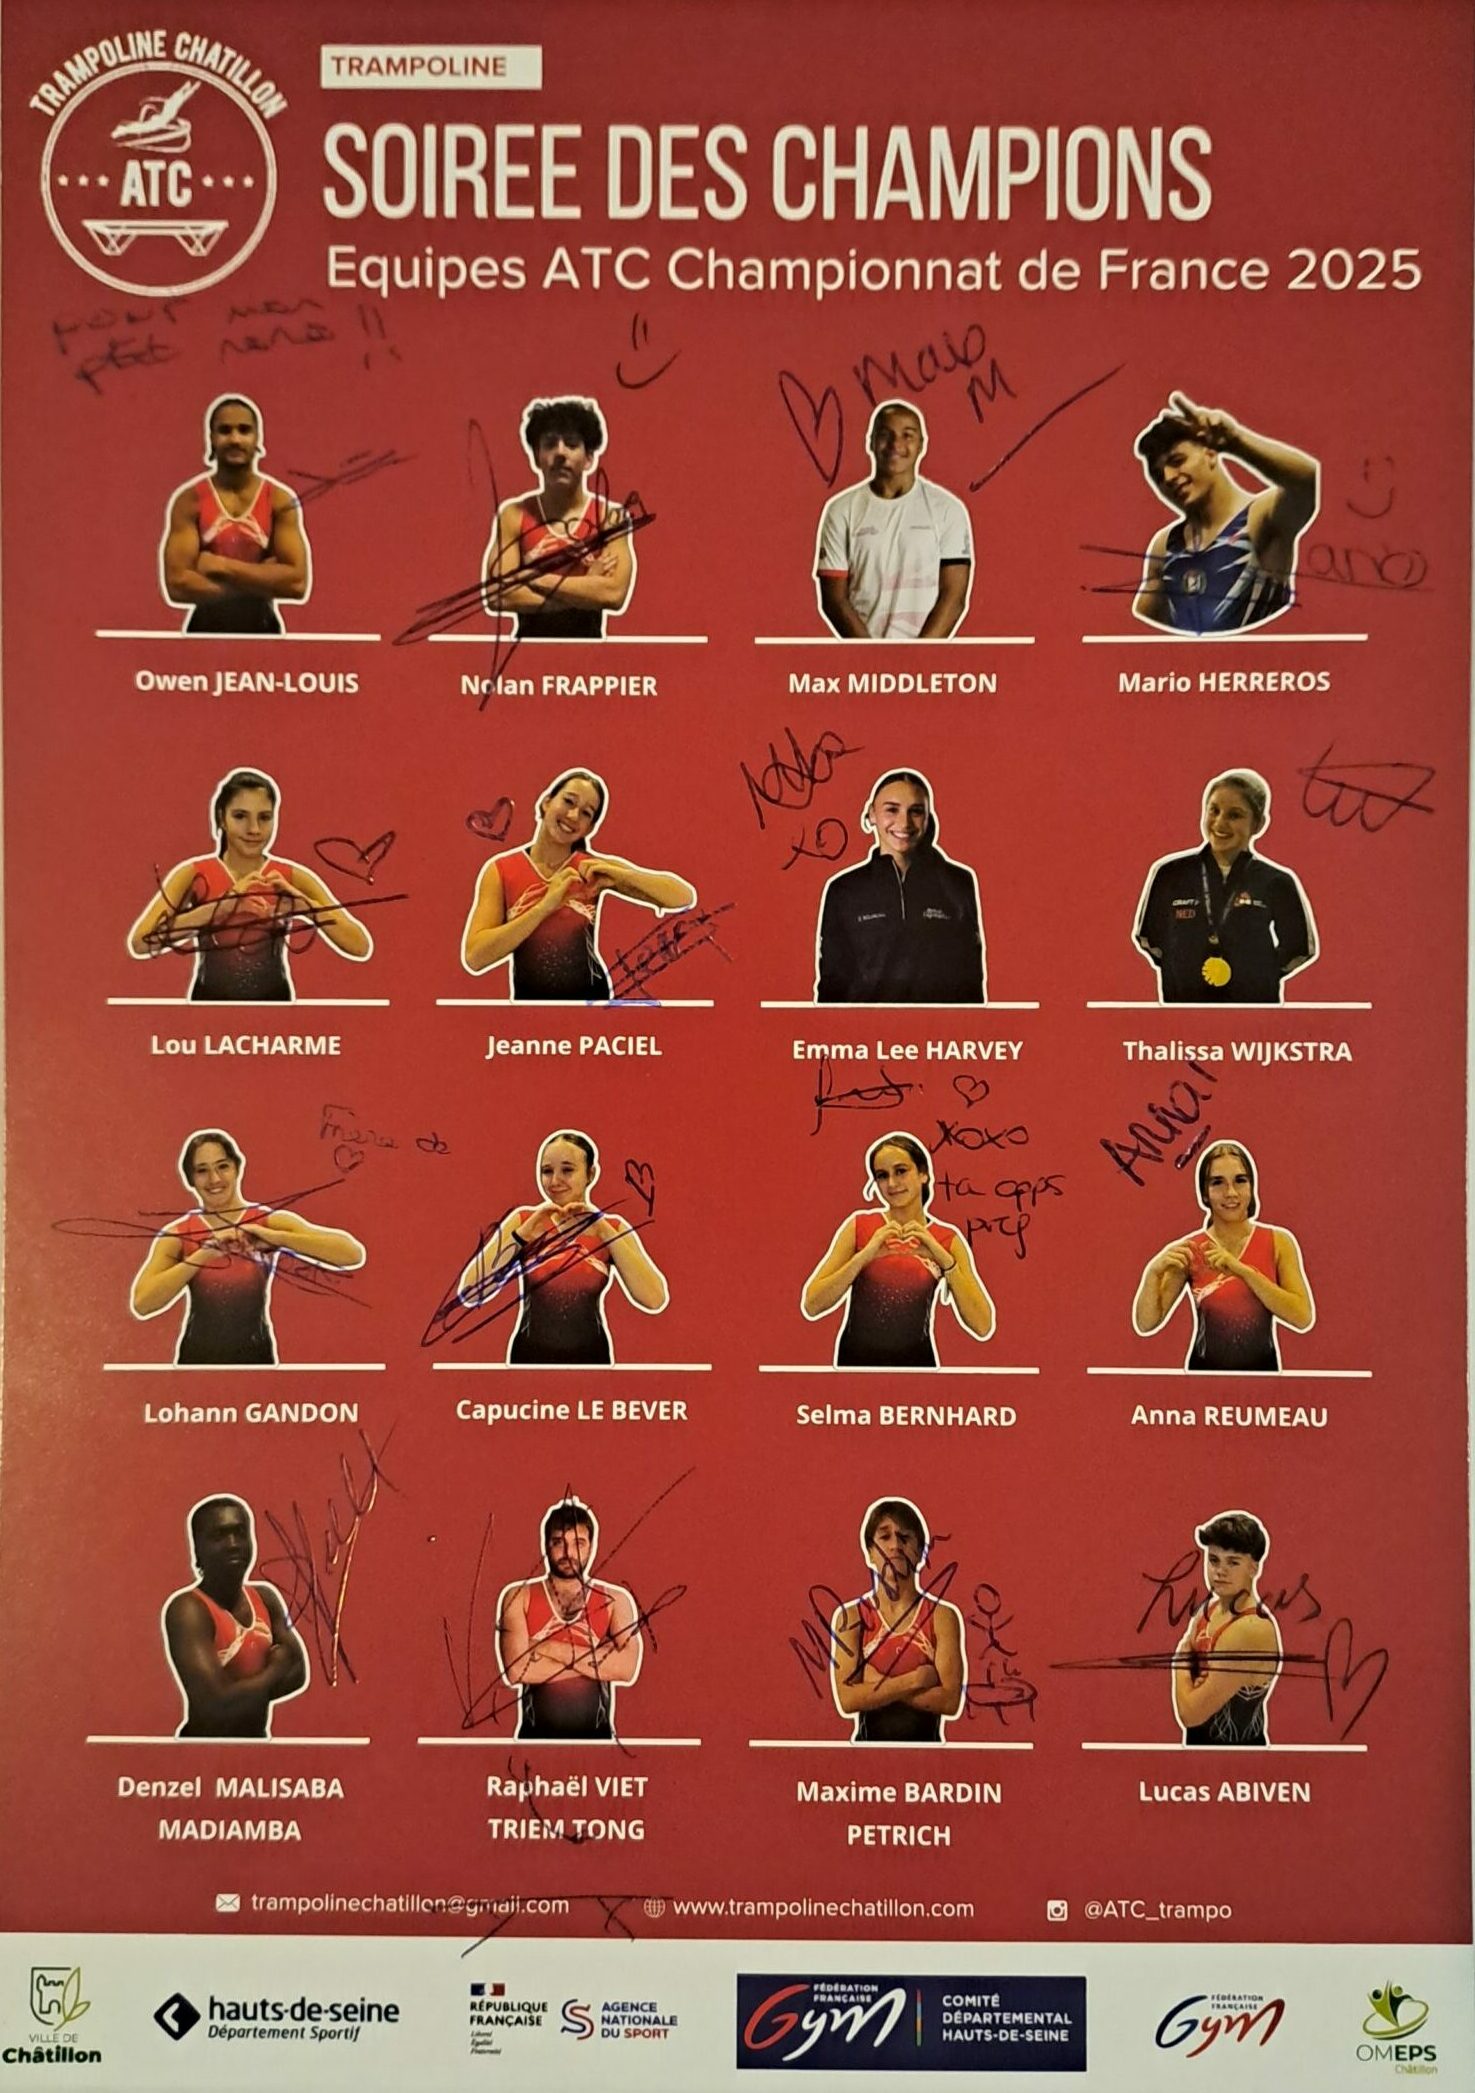 TRAMPOLINE CHATILLON
ATC
TRAMPOLINE
SOIREE DES CHAMPIONS
Equipes ATC Championnat de France 2025
pour mon
ptit
Owen JEAN-LOUIS
Nolan FRAPPIER
Max MIDDLETON
Mario HERREROS
XO
Lou LACHARME
Jeanne PACIEL
Emma Lee HARVEY
Thalissa WIJKSTRA
xoxo
ta
Anna
Lohann GANDON
Capucine LE BEVER
Selma BERNHARD
Anna REUMEAU
Lucas
Denzel MALISABA
MADIAMBA
Raphaël VIET
TRIEM TONG
Maxime BARDIN
PETRICH
Lucas ABIVEN
trampolinechatillon@gmail.com
www.trampolinechatillon.com
@ATC_trampo
VILLE DE
Châtillon
hauts-de-seine
Département Sportif
RÉPUBLIQUE
FRANÇAISE
Liberté
Égalité
Fraternité
AGENCE
NATIONALE
DU SPORT
FÉDÉRATION
FRANÇAISE
Gym
COMITÉ
DÉPARTEMENTAL
HAUTS-DE-SEINE
FÉDÉRATION
FRANÇAISE
Gym
OMEPS
Châtillon